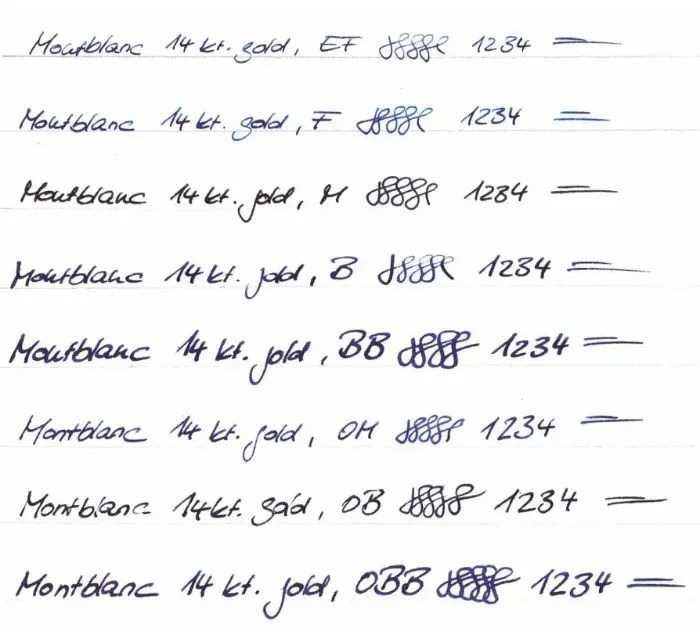 Montblanc 14 kt. gold, EF 1234
Montblanc 14 kt. gold, F 1234
Montblanc 14 kt. gold, M 1234
Montblanc 14 kt. gold, B 1234
Montblanc 14 kt. gold, BB 1234
Montblanc 14 kt. gold, OM 1234
Montblanc 14 kt. gold, OB 1234
Montblanc 14 kt. gold, OBB 1234